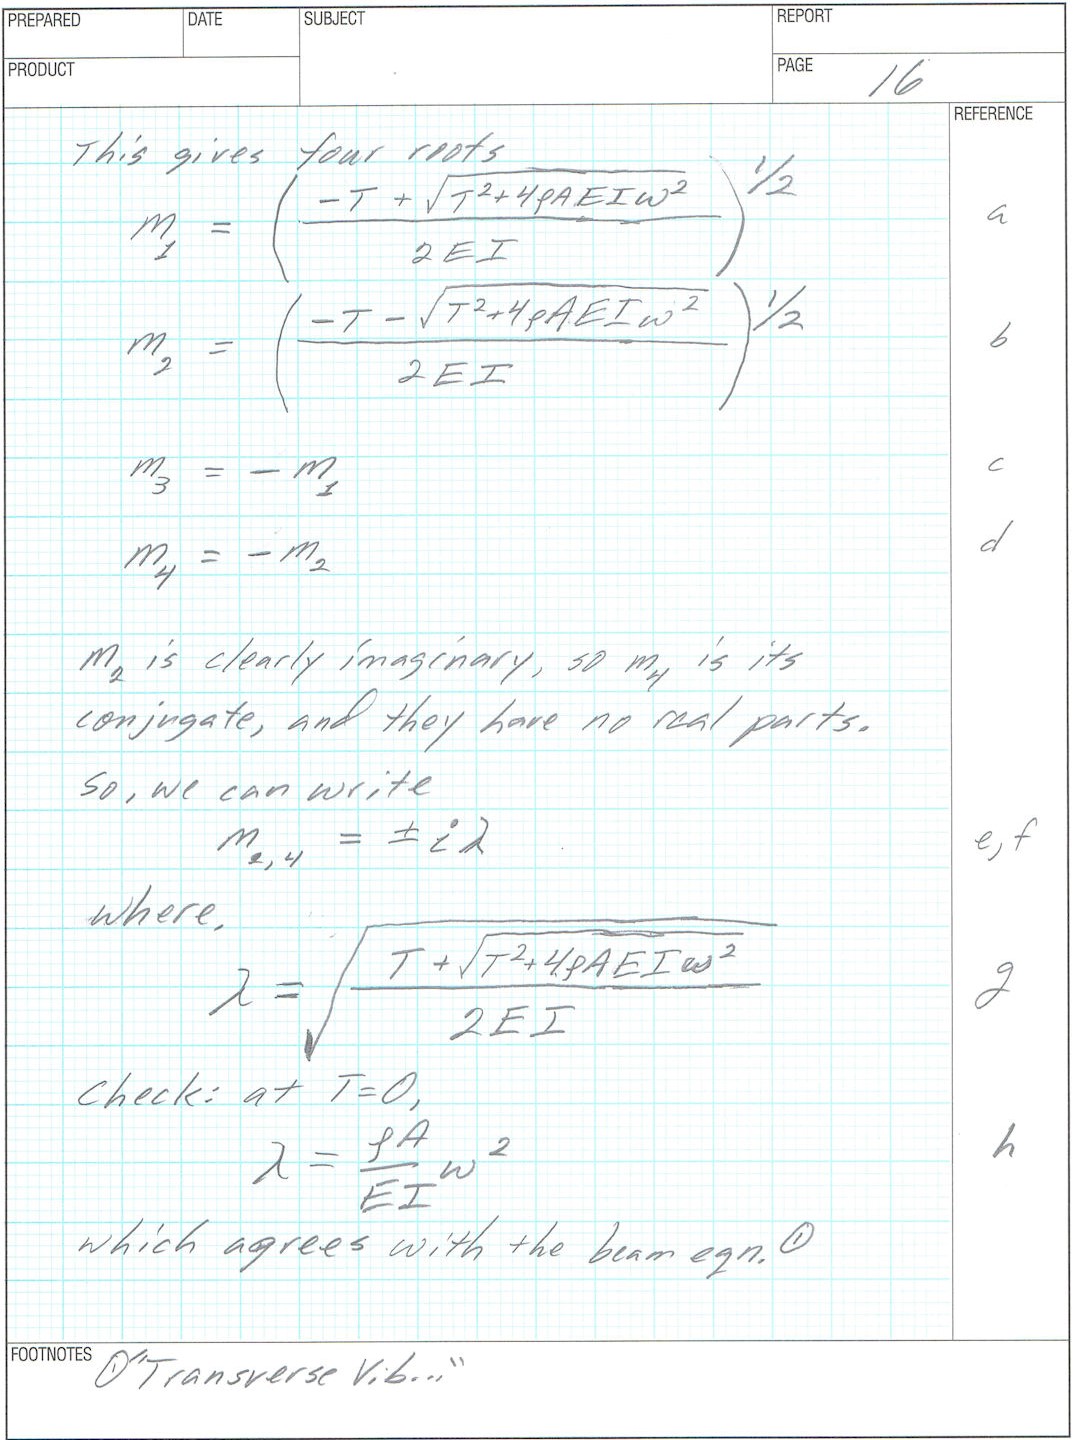 PREPARED DATE SUBJECT REPORT
PRODUCT PAGE 16
REFERENCE
This gives four roots
m₁ = ((-T + √(T²+4ρAEIω²)) / 2EI)^1/2 a
m₂ = ((-T - √(T²+4ρAEIω²)) / 2EI)^1/2 b
m₃ = -m₁ c
m₄ = -m₂ d
m₂ is clearly imaginary, so m₄ is its
conjugate, and they have no real parts.
So, we can write
m₂,₄ = ± iλ e, f
where,
λ = √((T + √(T²+4ρAEIω²)) / 2EI) g
Check: at T=0,
λ = ρA/EI ω² h
which agrees with the beam eqn. ①
FOOTNOTES ① "Transverse Vib..."